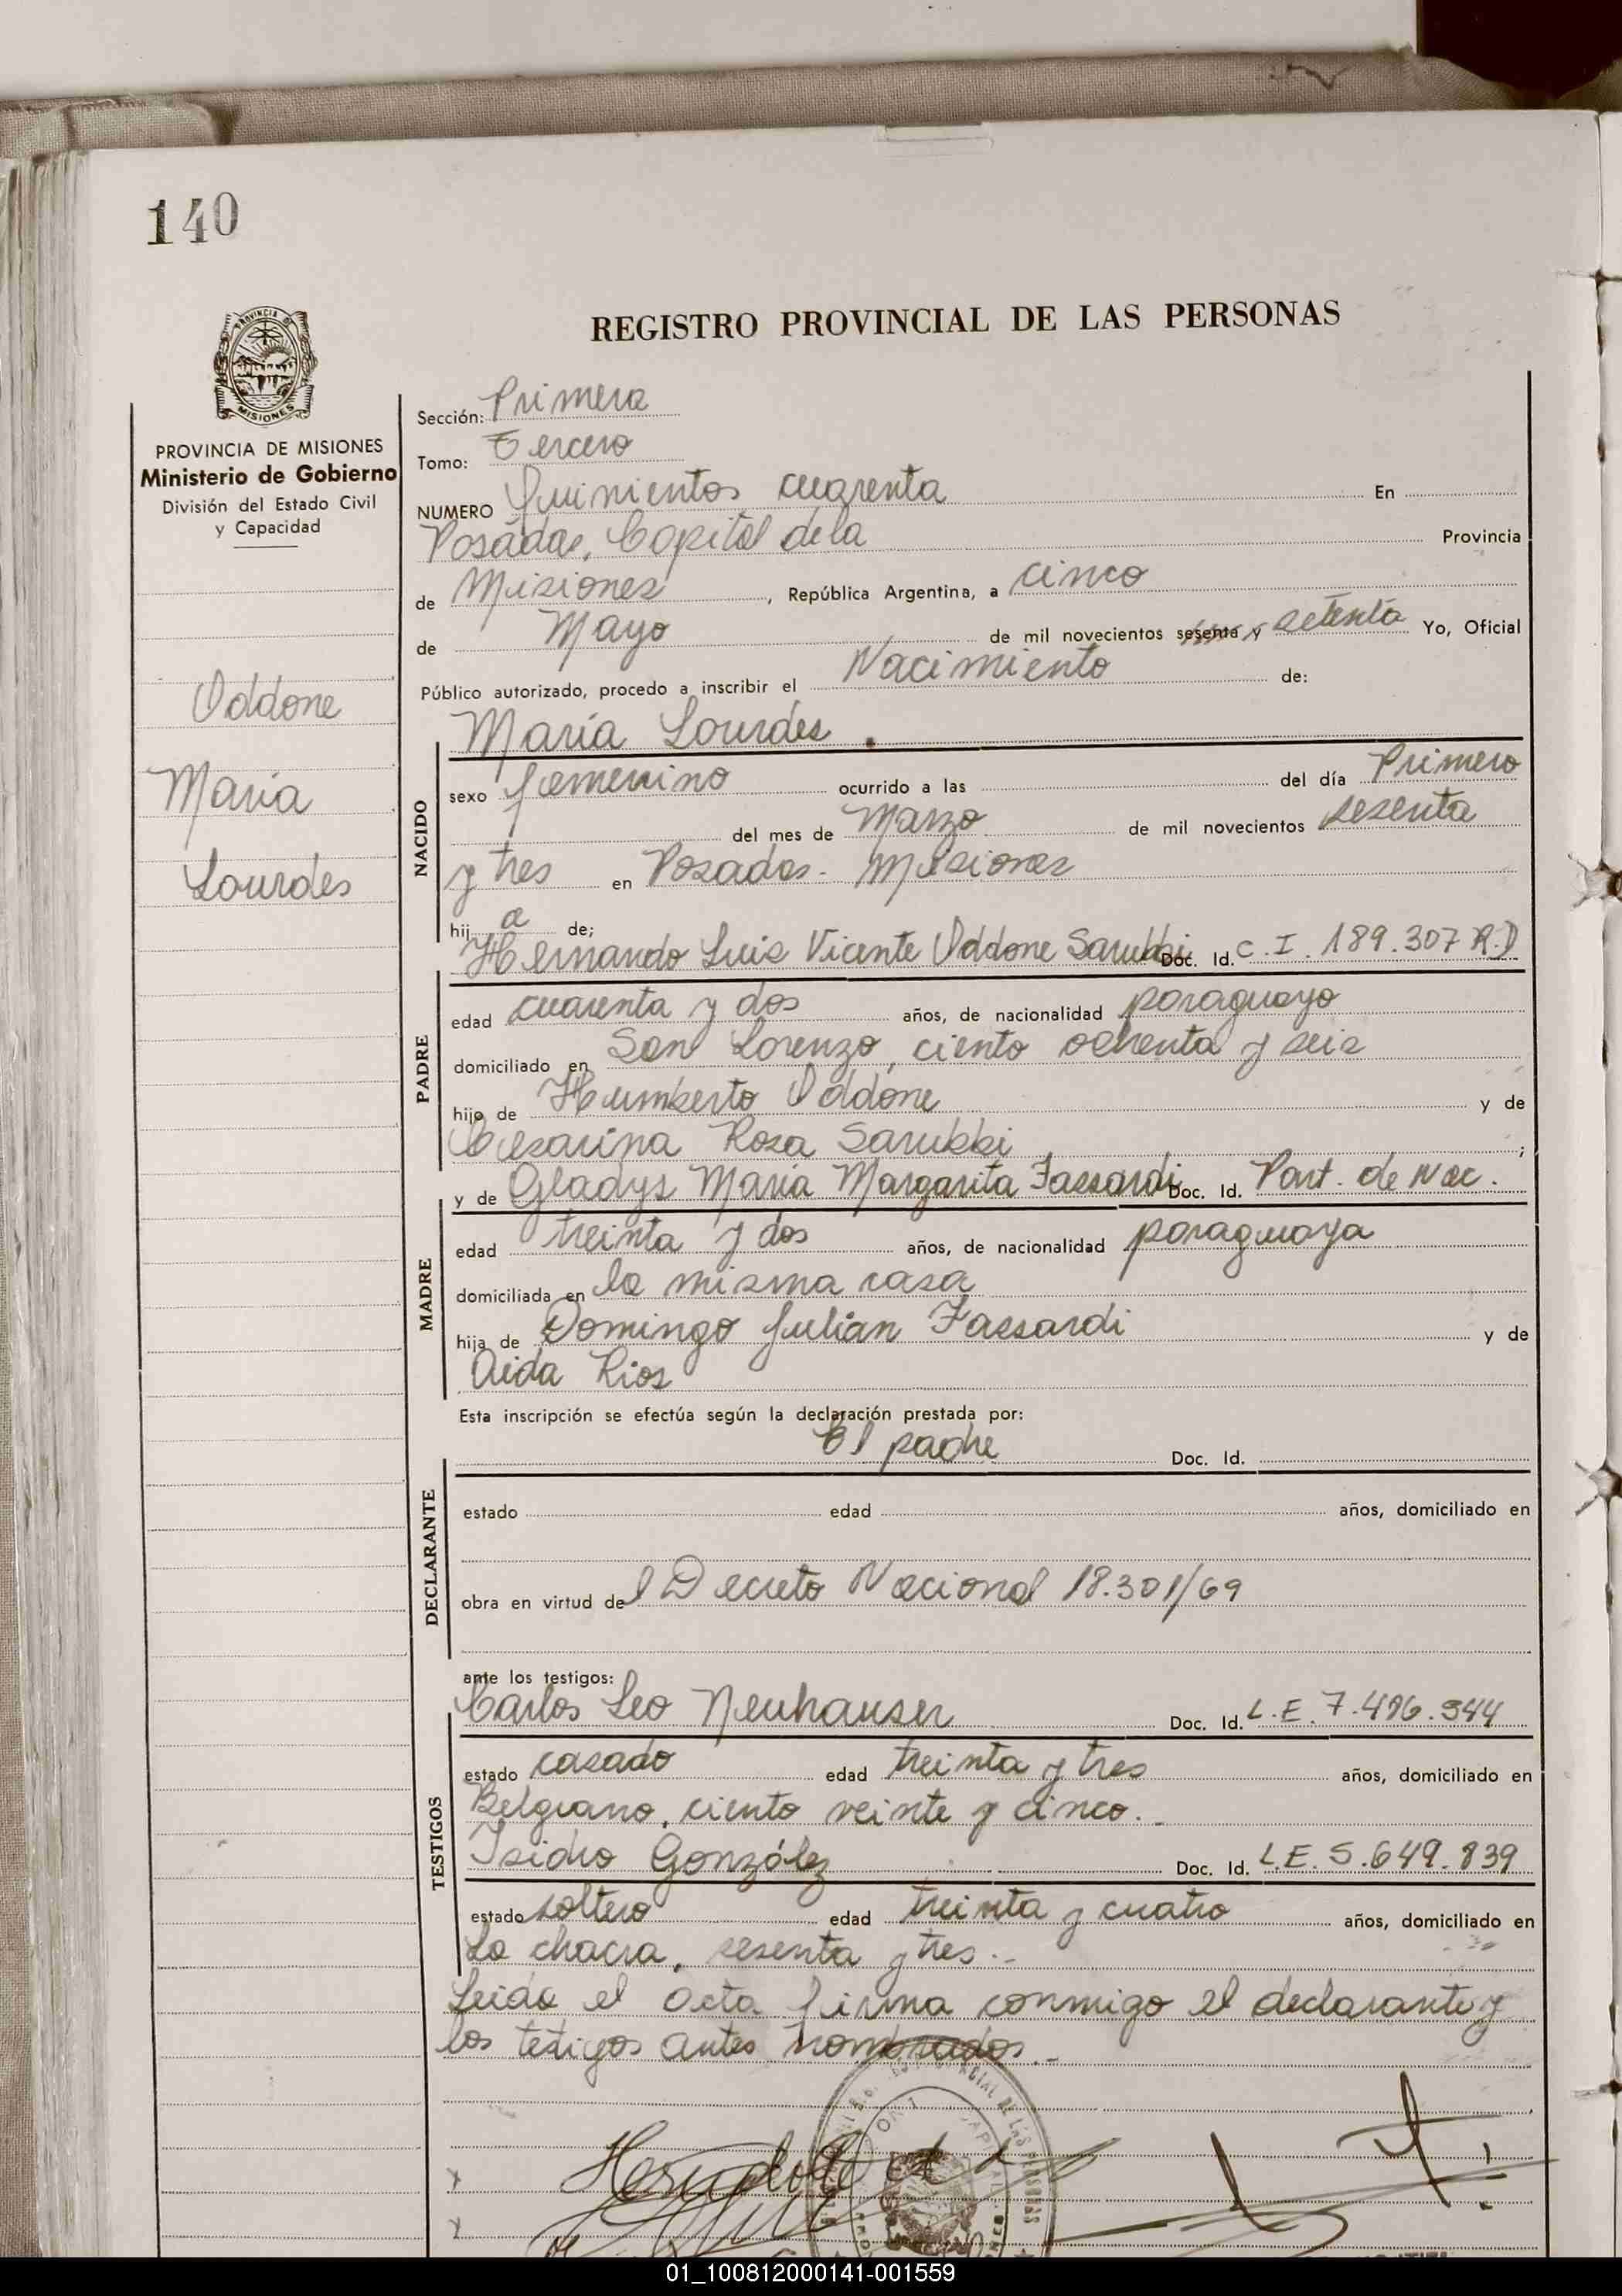 140
REGISTRO PROVINCIAL DE LAS PERSONAS
PROVINCIA DE MISIONES
Ministerio de Gobierno
División del Estado Civil
y Capacidad
Oddone
Maria
Lourdes
Sección: Primera
Tomo: Tercero
NUMERO Quinientos cuarenta En
Posadas, Capital de la Provincia
de Misiones, República Argentina, a cinco
de Mayo de mil novecientos sesenta y setenta Yo, Oficial
Público autorizado, procedo a inscribir el Nacimiento de:
María Lourdes
NACIDO
sexo femenino ocurrido a las del día Primero
del mes de Marzo de mil novecientos sesenta
y tres en Posadas - Misiones
hij a de;
Hernando Luis Vicente Oddone Sarubbi Doc. Id. C. I. 189.307 R.P
PADRE
edad cuarenta y dos años, de nacionalidad paraguayo
domiciliado en San Lorenzo, ciento ochenta y seis
hijo de Humberto Oddone y de
Cesarina Rosa Sarubbi ;
y de Gladys María Margarita Fassardi Doc. Id. Part. de Nac.
MADRE
edad treinta y dos años, de nacionalidad paraguaya
domiciliada en la misma casa
hija de Domingo Julian Fassardi y de
Aida Rios
Esta inscripción se efectúa según la declaración prestada por:
El padre Doc. Id.
DECLARANTE
estado edad años, domiciliado en
obra en virtud del Decreto Nacional 18.301/69
ante los testigos:
Carlos Leo Neuhauser Doc. Id. L.E. 7.496.944
TESTIGOS
estado casado edad treinta y tres años, domiciliado en
Belgrano, ciento veinte y cinco.-
Isidro González Doc. Id. L.E. 5.649.839
estado soltero edad treinta y cuatro años, domiciliado en
La chacra, sesenta y tres.-
Leida el acta firma conmigo el declarante y
los testigos antes nombrados.-
01_100812000141-001559